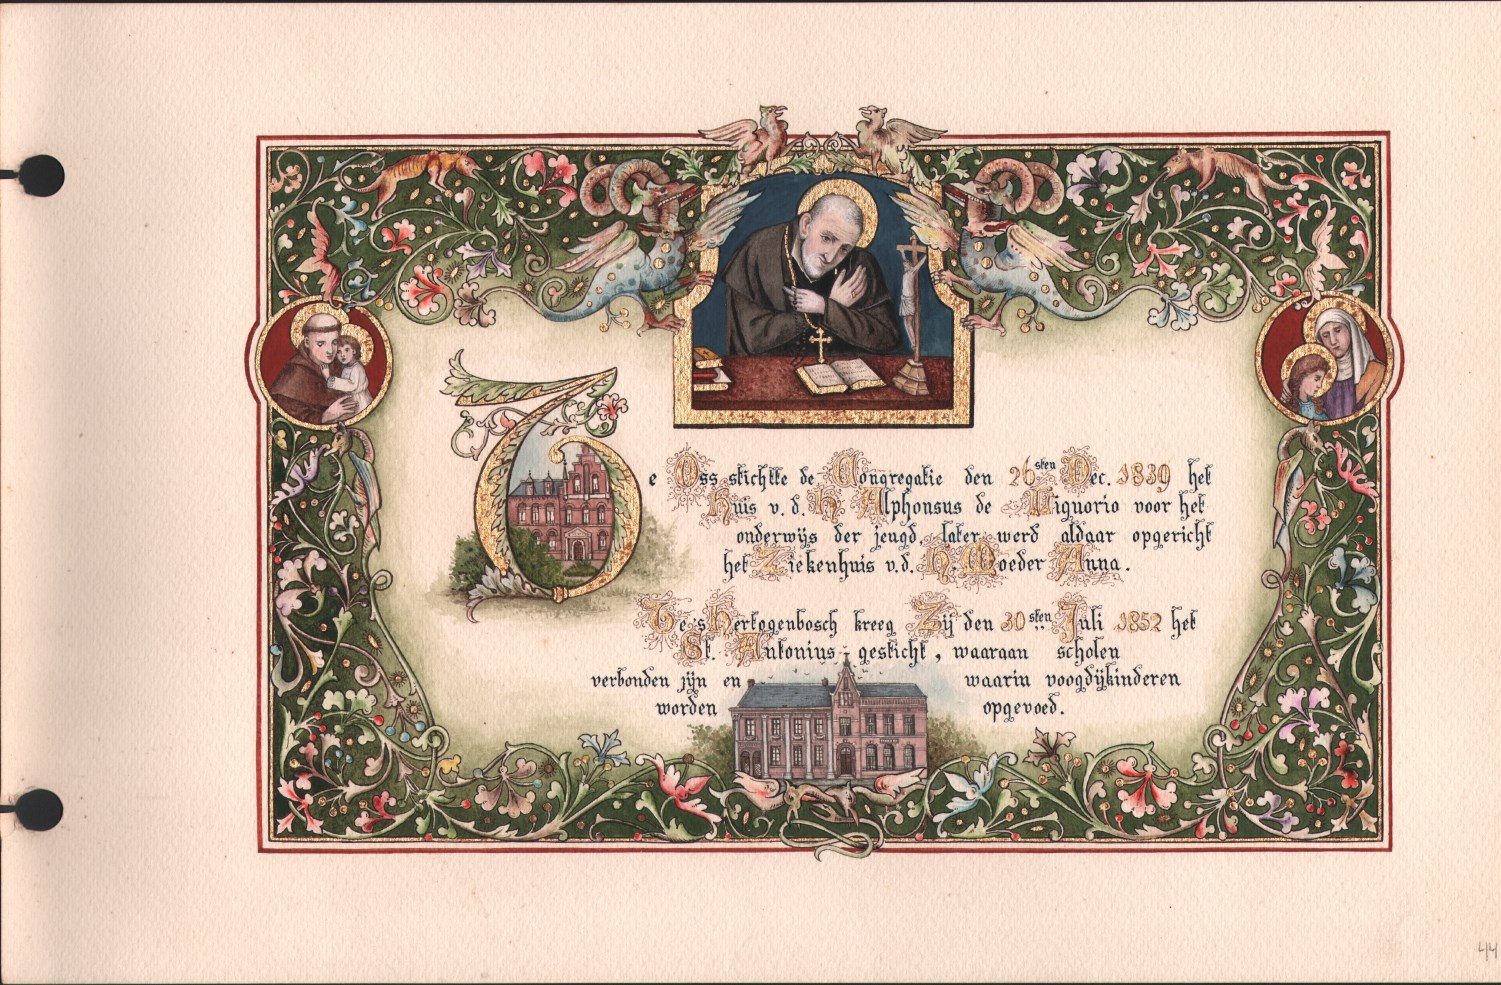 Te Oss stichtte de Congregatie den 26sten Dec. 1839 het
Huis v.d. H. Alphonsus de Liguorio voor het
onderwijs der jeugd, later werd aldaar opgericht
het Ziekenhuis v.d. H. Moeder Anna.
Te 's Hertogenbosch kreeg Zij den 30sten Juli 1852 het
St. Antonius-gesticht, waaraan scholen
verbonden zijn en waarin voogdijkinderen
worden opgevoed.
44